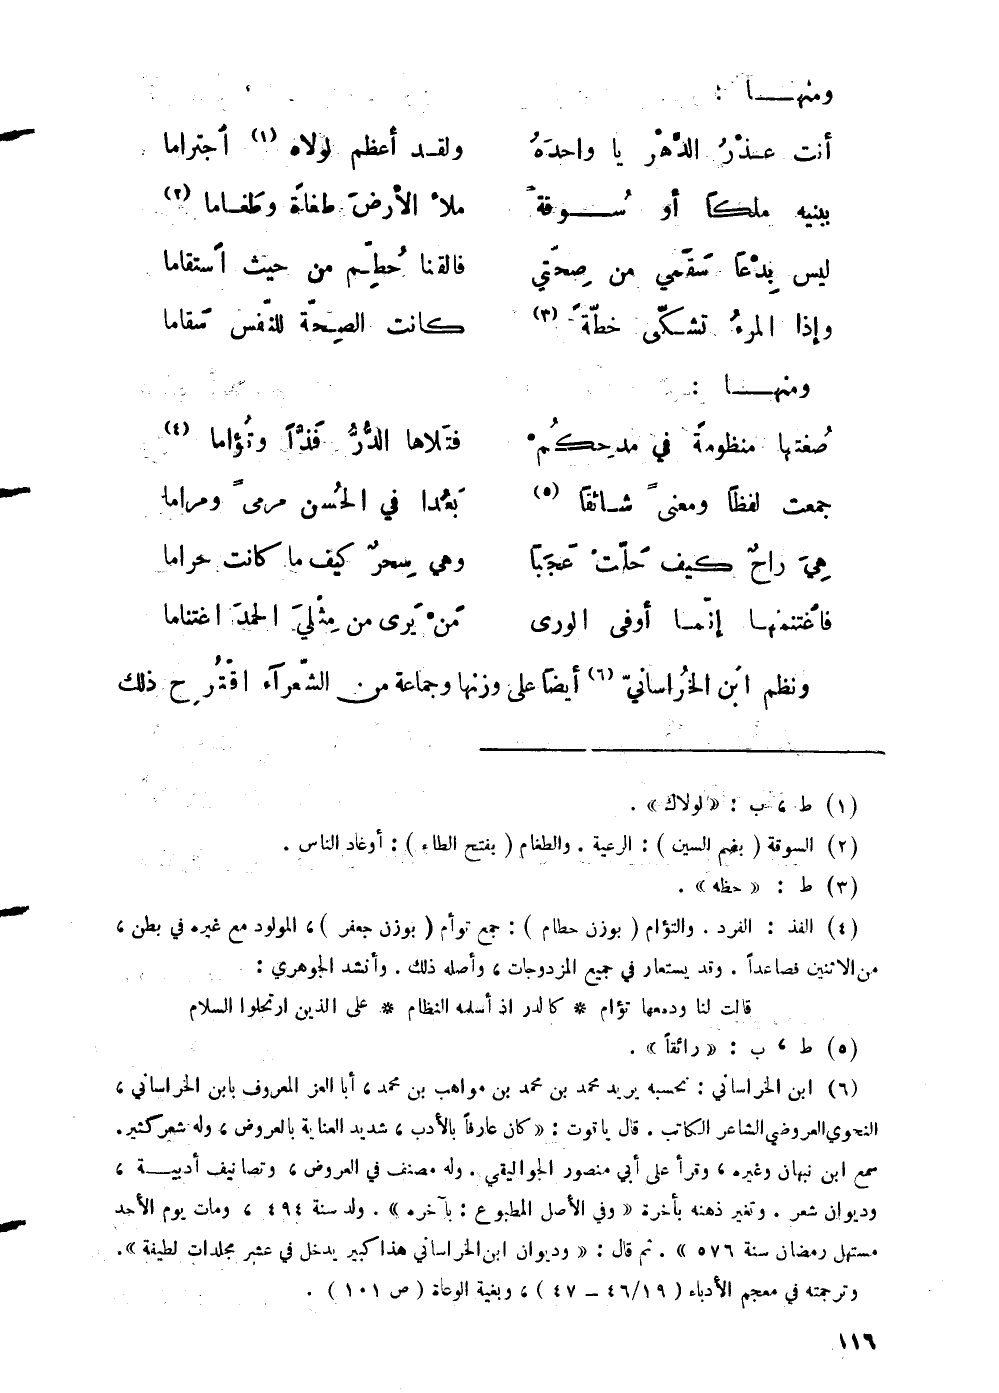 ومنهـــا :
أنت عـذْرُ الدَّهْرِ يا واحدَهُ ولقـد أعظم لولاه (١) أجتراما
ببنيه ملكاً أو سُـــوقةً ملأ الأرضَ طغاةً وطَغـاما (٢)
ليس بِدْعاً سَقَمي من صِحتّي فالقنا حُطِّم من حيث أستقاما
وإذا المرءُ تشكّى خطّةً (٣) كانت الصِحّة للنّفس سَقاما
ومنهـــا :
صُغتها منظومةً في مدحِكُمْ فتَلاها الدُّرُّ فَذّاً وتُؤاما (٤)
جمعت لفظاً ومعنىً شـائقاً (٥) بَعُدا في الحُسن مرمىً ومراما
هِيَ راحٌ كيف حَلّتْ عَجَباً وهي سِحرٌ كيف ما كانت حراما
فاغتنمْها إنّمـا أوفى الورى مَنْ يَرى من مِثْليَ الحمدَ اغتناما
ونظم ابن الخُراسانيّ (٦) أيضاً على وزنها وجماعة من الشّعرآء اقتُرِح ذلك
(١) ط ، ب : « لولاك » .
(٢) السوقة ( بضم السين ) : الرعية . والطغام ( بفتح الطاء ) : أوغاد الناس .
(٣) ط : « حظه » .
(٤) الفذ : الفرد . والتؤام ( بوزن حطام ) : جمع توأم ( بوزن جعفر ) ، المولود مع غيره في بطن ،
من الاثنين فصاعداً . وقد يستعار في جميع المزدوجات ، وأصله ذلك . وأنشد الجوهري :
قالت لنا ودمعها تؤام * كالدر اذ أسلمه النظام * على الذين ارتحلوا السلام
(٥) ط ، ب : « رائقاً » .
(٦) ابن الخراساني : نحسبه يريد محمد بن محمد بن مواهب بن محمد ، أبا العز المعروف بابن الخراساني ،
النحوي العروضي الشاعر الكاتب . قال ياقوت : « كان عارفاً بالأدب ، شديد العناية بالعروض ، وله شعر كثير .
سمع ابن نبهان وغيره ، وقرأ على أبي منصور الجواليقي . وله مصنف في العروض ، وتصانيف أدبيـــة ،
وديوان شعر . وتغير ذهنه بأخرة « وفي الأصل المطبوع : بآخره » . ولد سنة ٤٩٤ ، ومات يوم الأحد
مستهل رمضان سنة ٥٧٦ » . ثم قال : « وديوان ابن الخراساني هذا كبير يدخل في عشر مجلدات لطيفة » .
وترجمته في معجم الأدباء ( ١٩/٤٦ – ٤٧ ) ، وبغية الوعاة ( ص ١٠١ ) .
١١٦